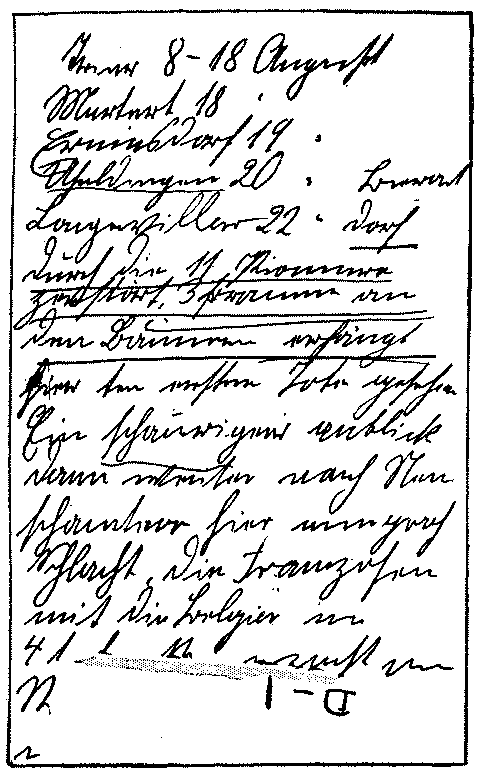 Trier 8-18 August
Mertert 18 "
Ermsdorf 19 "
Ufeldingen 20 " Biwak
Longeviller 22 " Dorf
durch die 11 Pionniere
zerstört, 3 Framme an
den Bäumen erhängt
hier den ersten Tote gesehen
Ein schauriger anblick
dann weiter nach Neu
schanteau hier eine groß
Schlacht, die Franzosen
mit die Belgier im
41
D-1